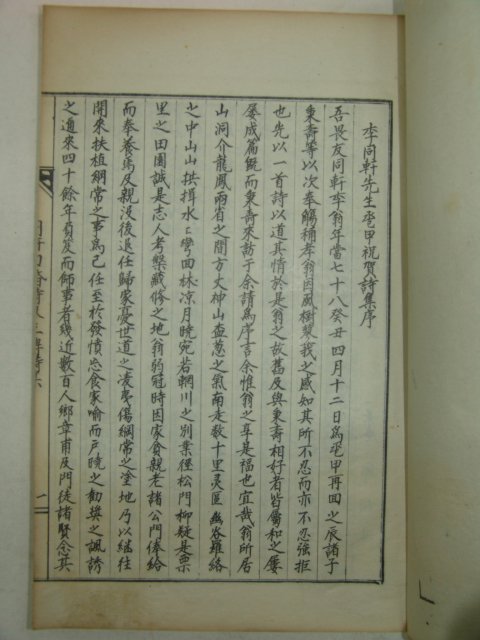 李同軒先生壽甲祝賀詩集序
吾畏友同軒李翁年當七十八癸丑四月十二日爲壽甲再回之辰諸子
秉壽等以次奉觴稱孝翁因風樹蓼莪之感知其所不忍而亦不忍強拒
也先以一首詩以道其情於是翁之故舊及與秉壽相好者皆屬和之屢
屢成篇旣而秉壽來訪于余請爲序言余惟翁之享是福也宜哉翁所居
山洞介龍鳳兩省之間方丈神山盍葱之氣南走数十里灵区幽谷羅絡
之中山山拱揖水水彎回林凉月曉宛若輞川之別業徑松門柳疑是栗
里之田園誠是志人考槃藏修之地翁弱冠時因家貧親老諸公門俸給
而奉養焉及親没後退任歸家憂世道之凌夷傷綱常之塗地乃以継往
開來扶植綱常之事爲己任至於發憤忘食家喻而戶曉之勸奬之諷誘
之邇來四十餘年負笈而師事者幾近數百人鄉章甫及門徒諸賢念其
一